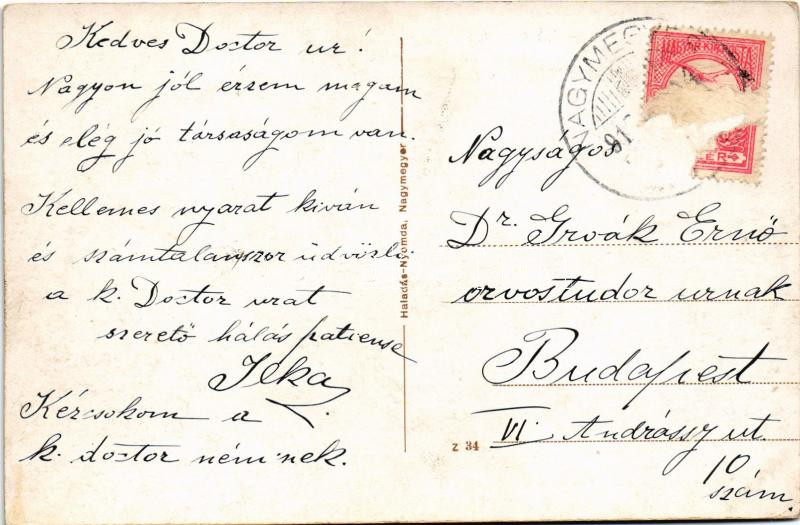 Kedves Doctor ur!
Nagyon jól érzem magam
és elég jó társaságom van.
Kellemes nyarat kiván
és számtalanszor üdvözli
a k. Doctor urat
szerető hálás patiense
Ilka
Kézcsokom a
k. doctor néninek.
Haladás-Nyomda, Nagymegyer
z 34
NAGYMEGYER
MAGYAR KIR. POSTA
Nagyságos
Dr. Grvák Ernő
orvostudor urnak
Budapest
VI. Andrássy ut.
10
szám.